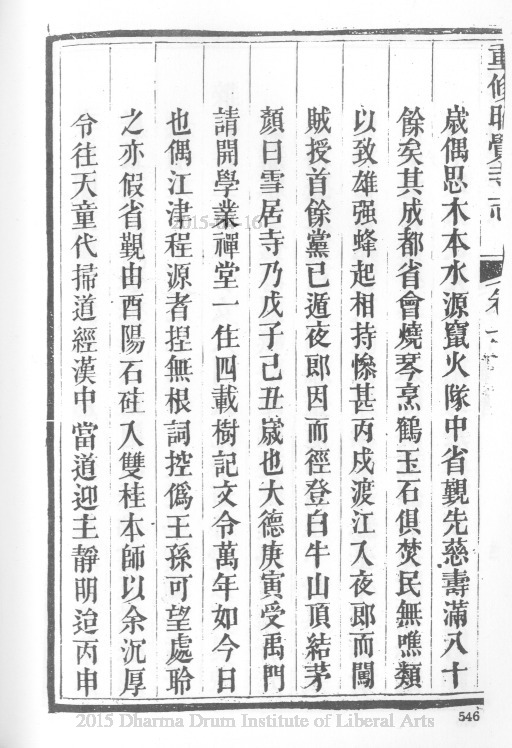 重修昭覺寺志
歲偶思木本水源竄火隊中省覲先慈壽滿八十
餘矣其成都省會燒琴烹鶴玉石俱焚民無噍類
以致雄强蜂起相持慘甚丙戌渡江入夜郎而闖
賊授首餘黨已遁夜郎因而徑登白牛山頂結茅
顏曰雪居寺乃戊子己丑歲也大德庚寅受禹門
請開學業禪堂一住四載樹記文令萬年如今日
也偶江津程源者揑無根詞控僞王孫可望處聆
之亦假省覲由酉陽石砫入雙桂本師以余沉厚
令往天童代掃道經漢中當道迎主靜明迨丙申
546
2015 Dharma Drum Institute of Liberal Arts